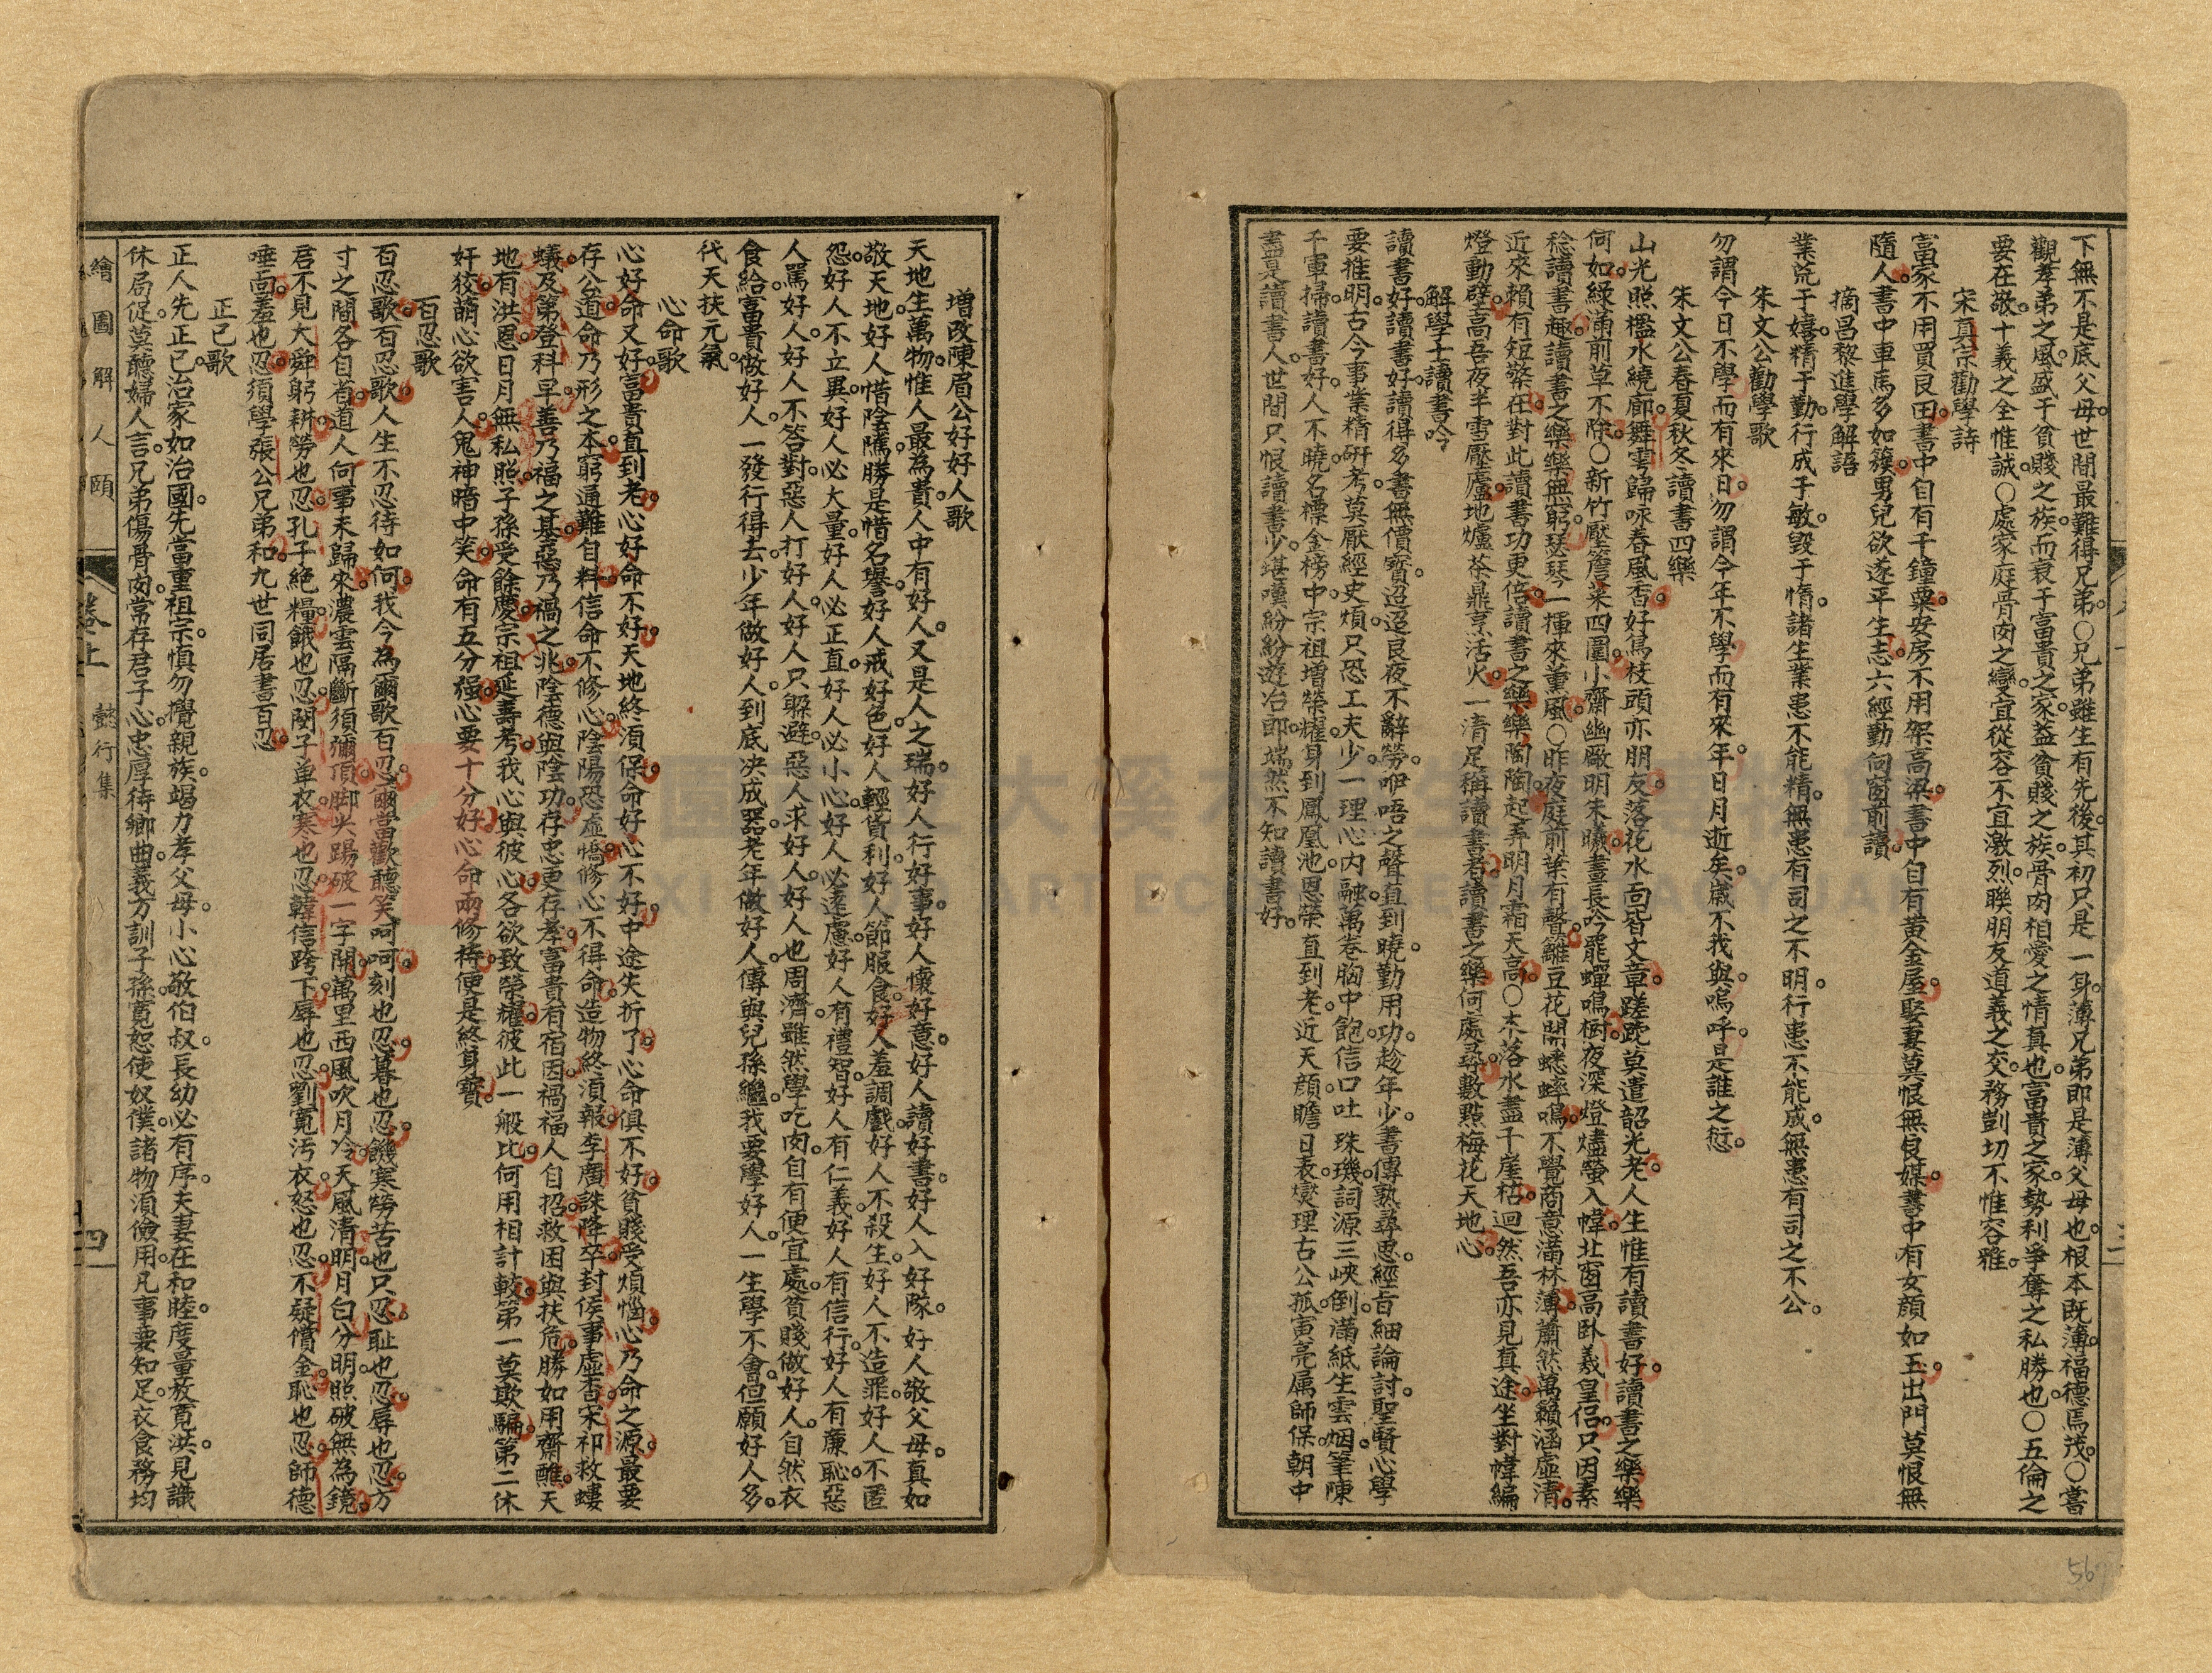 下無不是底父母。世間最難得兄弟。〇兄弟雖生有先後。其初只是一身。薄兄弟即是薄父母也。根本既薄。福德焉茂。〇嘗
觀孝弟之風。盛于貧賤之族。而衰于富貴之家。蓋貧賤之族。骨肉相愛之情真也。富貴之家。勢利爭奪之私勝也。〇五倫之
要在敬。十義之全惟誠。〇處家庭骨肉之變。宜從容不宜激烈。聯朋友道義之交。務剴切不惟容雅。
宋真宗勸學詩
富家不用買良田。書中自有千鐘粟。安房不用架高梁。書中自有黃金屋。娶妻莫恨無良媒。書中有女顏如玉。出門莫恨無
隨人。書中車馬多如簇。男兒欲遂平生志。六經勤向窗前讀。
摘昌黎進學解語
業荒于嬉。精于勤。行成于敏。毀于惰。諸生業患不能精。無患有司之不明。行患不能成。無患有司之不公。
朱文公勸學歌
勿謂今日不學而有來日。勿謂今年不學而有來年。日月逝矣。歲不我與。嗚呼。是誰之愆。
朱文公春夏秋冬讀書四樂
山光照檻水繞廊。舞雩歸咏春風香。好鳥枝頭亦朋友。落花水面皆文章。蹉跎莫遣韶光老。人生惟有讀書好。讀書之樂樂
何如。綠滿前草不除。〇新竹壓簷桑四圍。小齋幽敞明朱曦。晝長吟罷蟬鳴樹。夜深燈燼螢入幃。北窗高臥羲皇侶。只因素
稔讀書趣。讀書之樂樂無窮。瑟琴一揮來薰風。〇昨夜庭前葉有聲。籬豆花開蟋蟀鳴。不覺商意滿林薄。蕭然萬籟涵虛清。
近來賴有短檠在。對此讀書功更倍。讀書之樂樂陶陶。起弄明月霜天高。〇木落水盡千崖枯。迥然吾亦見真途。坐對幃編
燈動壁。高吾夜半雪壓廬。地爐茶鼎烹活火。一清足稱讀書者。讀書之樂何處尋。數點梅花天地心。
解學士讀書吟
讀書好。讀書好。讀得多書無價寶。迢迢良夜不辭勞。咿唔之聲直到曉。勤用功。趁年少。書傳熟尋思。經旨細論討。聖賢心學
要推明。古今事業精研考。莫厭經史煩。只恐工夫少。一理心內融。萬卷胸中飽。信口吐珠璣。詞源三峽倒。滿紙生雲烟。筆陳
千軍掃。讀書好。人不曉。名標金榜中。宗祖增榮耀。身到鳳凰池。恩榮直到老。近天顏。瞻日表。爕理古公孤。寅亮属師保。朝中
盡是讀書人。世間只恨讀書少。堪嘆紛紛遊冶郎。端然不知讀書好。
增改陳眉公好好人歌
天地生萬物。惟人最為貴。人中有好人。又是人之瑞。好人行好事。好人懷好意。好人讀好書。好人入好隊。好人敬父母。真如
敬天地。好人惜陰隲。勝是惜名譽。好人戒好色。好人輕貨利。好人節服食。好人羞調戲。好人不殺生。好人不造罪。好人不匿
怨。好人不立異。好人必大量。好人必正直。好人必小心。好人必遠慮。好人有禮智。好人有仁義。好人有信行。好人有廉恥。惡
人罵好人。好人不答對。惡人打好人。好人只躲避。惡人求好人。好人也周濟。雖然學吃肉。自有便宜處。貧賤做好人。自然衣
食給。富貴做好人。一發行得去。少年做好人。到底决成器。老年做好人。傳與兒孫繼。我要學好人。一生學不會。但願好人多。
代天扶元氣。
心命歌
心好命又好。富貴直到老。心好命不好。天地終須保。命好心不好。中途失折了。心命俱不好。貧賤受煩惱。心乃命之源。最要
存公道。命乃形之本。窮通難自料。信命不修心。陰陽恐虛憍。修心不得命。造物終須報。李廣誅降卒。封侯事虛杳。宋祁救螻
蟻。及第登科早。善乃福之基。惡乃禍之兆。陰德與陰功。存忠更存孝。富貴有宿因。禍福人自招。救困與扶危。勝如用齋醮。天
地有洪恩。日月無私照。子孫受餘慶。宗祖延壽考。我心與彼心。各欲致榮耀。彼此一般比。何用相計較。第一莫欺騙。第二休
奸狡。萌心欲害人。鬼神暗中笑。命有五分强。心要十分好。心命兩修持。便是終身寶。
百忍歌
百忍歌。百忍歌。人生不忍待如何。我今為爾歌百忍。爾當歡聽笑呵呵。刻也忍。暮也忍。饑寒勞苦也只忍。耻也忍。辱也忍。方
寸之間各自省。道人何事未歸來。濃雲隔斷須彌頂。脚尖踢破一字關。萬里西風吹月冷。天風清。明月白。分明照破無為鏡。
君不見大舜躬耕勞也忍。孔子絕糧餓也忍。閔子单衣寒也忍。韓信跨下辱也忍。劉寬污衣怒也忍。不疑償金恥也忍。師德
唾面羞也忍。須學張公兄弟和。九世同居書百忍。
正己歌
正人先正己。治家如治國。先當重祖宗。慎勿攪親族。竭力孝父母。小心敬伯叔。長幼必有序。夫妻在和睦。度量放寛洪。見識
休局促。莫聽婦人言。兄弟傷骨肉。常存君子心。忠厚待鄉曲。義方訓子孫。寛恕使奴僕。諸物須儉用。凡事要知足。衣食務均
繪圖解人頤 卷上 懿行集 四
56